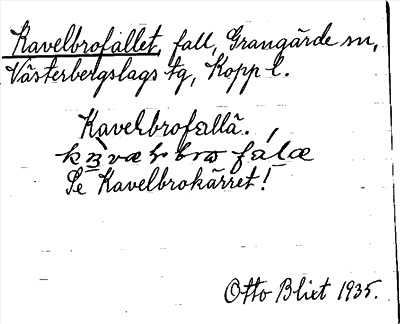 Kavelbrofallet, fall, Grangärde sn,
Västerbergslags tg, Kopp l.
Kavelbrofallä.
Se Kavelbrokärret!
Otto Blixt 1935.